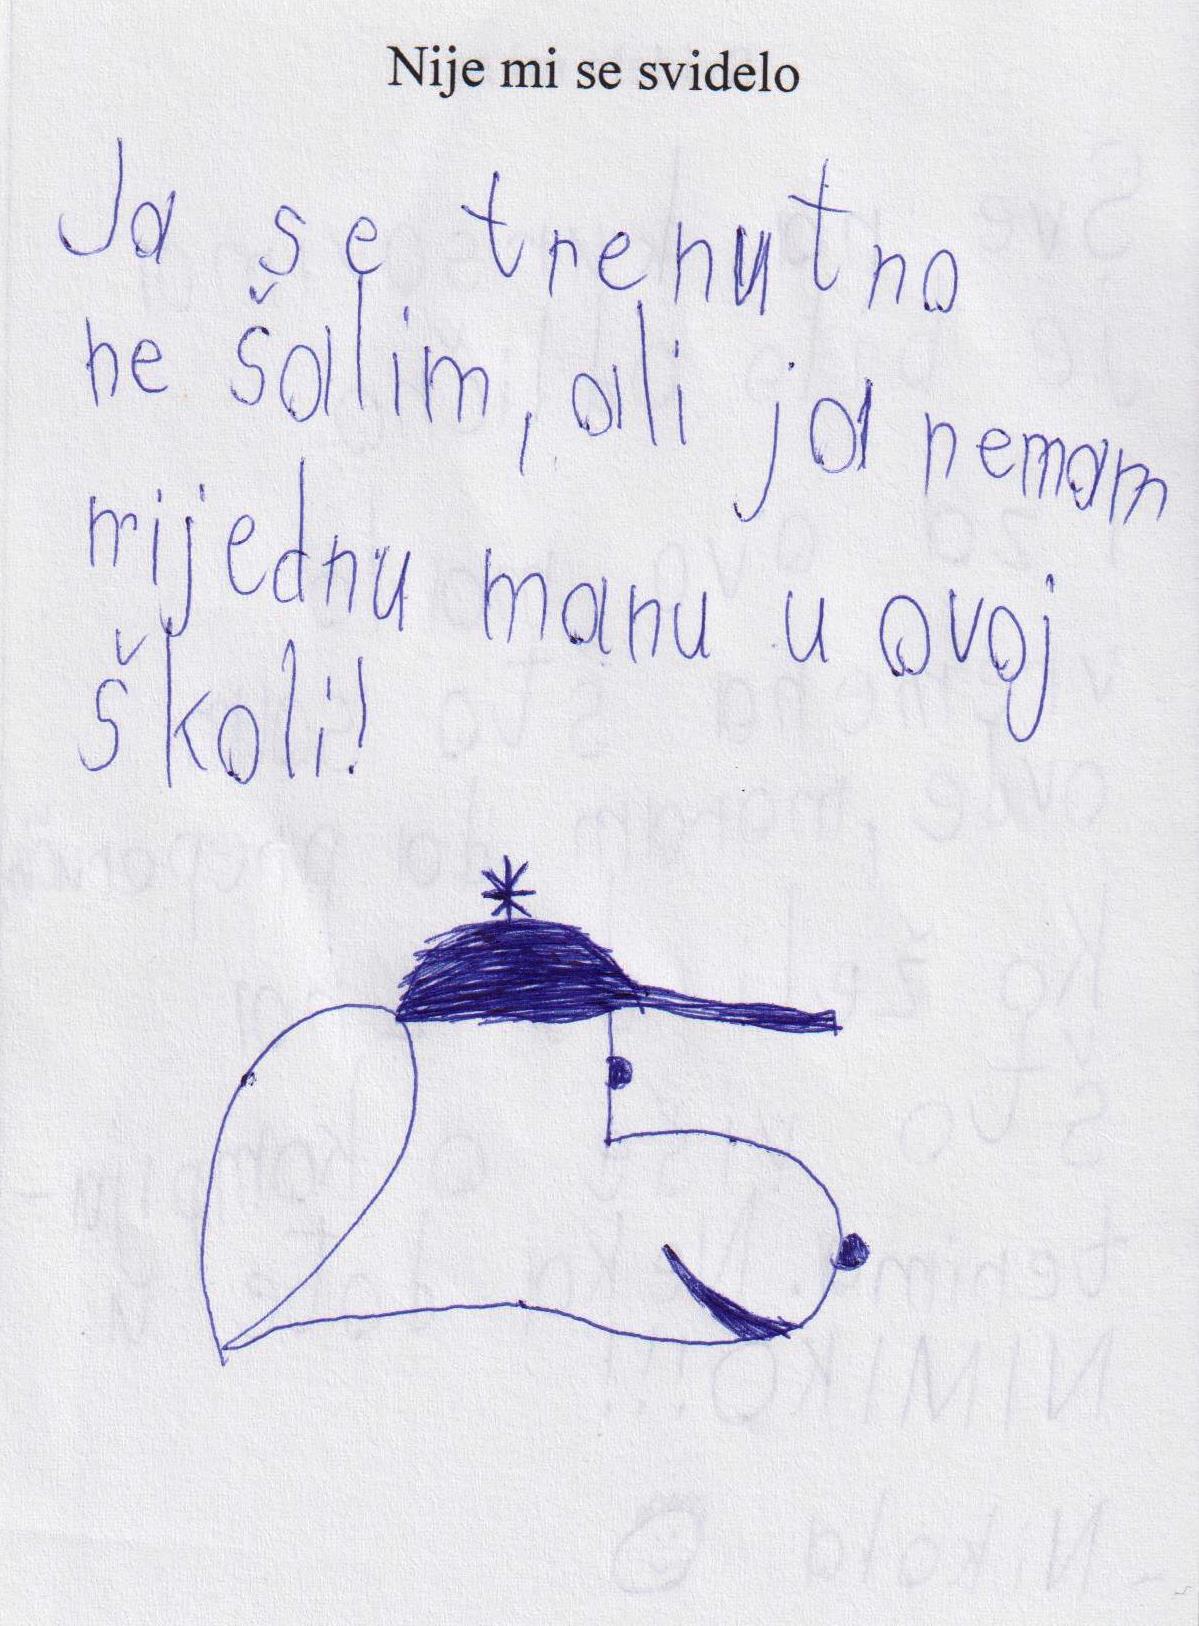 Nije mi se svidelo
Ja se trenutno
ne šalim, ali ja nemam
nijednu manu u ovoj
školi!